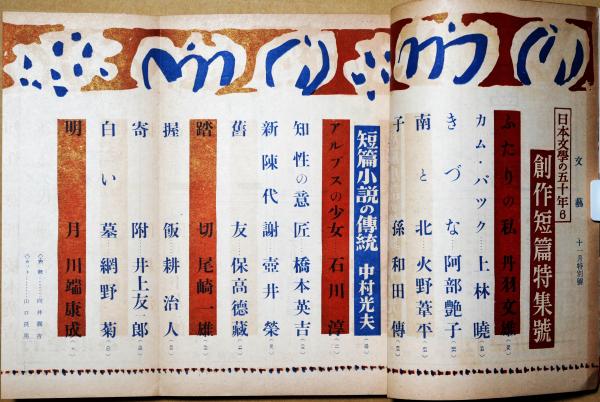 文藝 十一月特別號
日本文學の五十年 6
創作短篇特集號
ふたりの私 丹羽文雄
カム・バック 上林曉
きづな 阿部艷子
南と北 火野葦平
子孫 和田傳
短篇小説の傳統 中村光夫
アルプスの少女 石川淳
知性の意匠 橋本英吉
新陳代謝 壺井榮
舊友 保高德藏
踏切 尾崎一雄
握飯 耕治人
寄附 井上友一郎
白い墓 網野菊
明月 川端康成